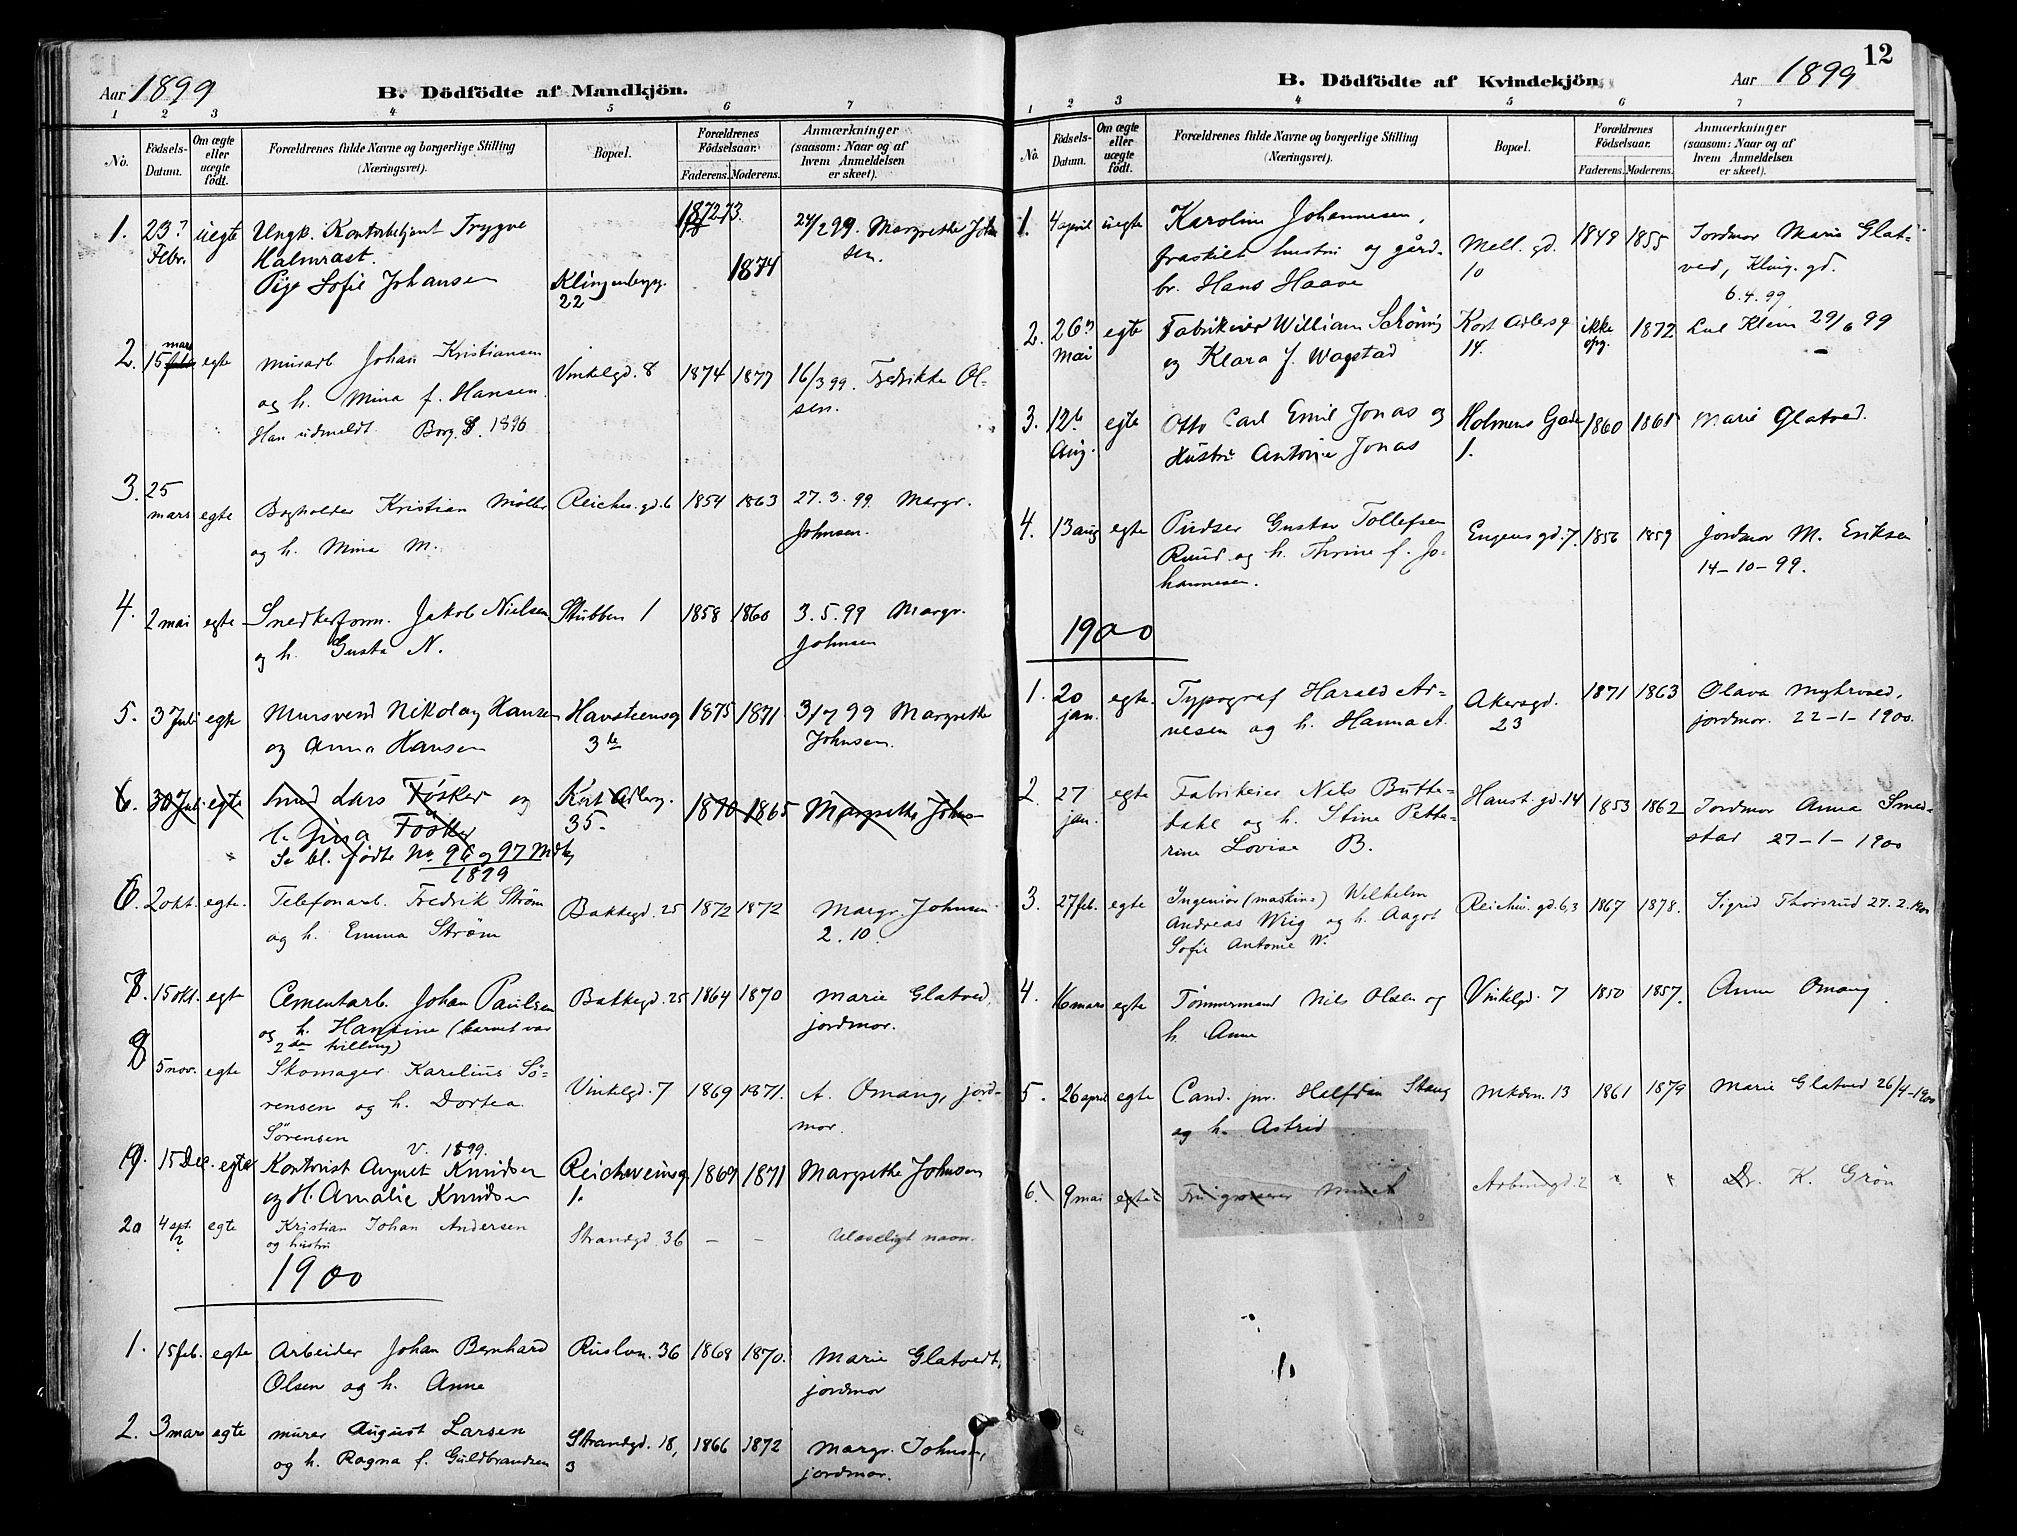 Aar 1899
B. Dödfödte af Mandkjön.
1 2 3 4 5 6 7
No.
Födsels-Datum.
Om ægte eller uægte födt.
Forældrenes fulde Navne og borgerlige Stilling (Næringsvei).
Bopæl.
Forældrenes Födselsaar.
Faderens. Moderens.
Anmærkninger (saasom: Naar og af hvem Anmeldelsen er skeet).
1. 23 Febr. uegte Ungk. Kontorbetjent Trygve 1872 73. 24/2 99. Margrethe John
Halmrast. sen.
Pige Sofie Johansen Klingenbergg. 22 1874
2. 15 mars egte Murarb. Johan Kristiansen Vinkelgd. 8 1874 1877 16/3 99. Fredrikke Ol-
og h. Mina f. Hansen sen.
Han udmeldt Borg. S. 1896
3. 25 mars egte Bogholder Kristian Møller Reichw. gd. 6 1854 1863 27.3.99. Margr.
og h. Mina M. Johnsen.
4. 2 mai egte Snedkerform. Jakob Nielsen Stubben 1 1858 1860 3.5.99 Margr.
og h. Gusta N. Johnsen
5. 3 Juli egte Mursvend Nikolay Hansen Havsteensg 1875 1871 3/7 99 Margrethe
og Anna Hansen 3 Johnsen.
6. 30 Juli egte Smed Lars Fösker og Kort Adlerg. 1870 1865 Margrethe Johns
h. Gina Fösker 35.
Se bl. fødte No. 96 og 97 Mdkj
1899
6. 2 okt. egte. Telefonarb. Fredrik Strøm Bakkegd. 25 1872 1872 Margr. Johnsen
og h. Emma Strøm 2.10.
7. 15 okt. egt Cementarb. Johan Paulsen Bakkegd. 25 1864 1870 Marie Glatved,
og h. Hansine (barnet var jordmor.
2den tvilling)
8 5 nov. egte Skomager Karelius Sö- Vinkelgd. 7 1869 1871. A. Omang, jord-
rensen og h. Dortea mor.
Sörensen v. 1899.
9. 15 Dec. egte Kontorist August Knudsen Reichweinsg 1869 1871 Margrethe Johnsen
og H. Amalie Knudsen 1.
20 4 spt. egte Kristian Johan Andersen Strandgd. 36 – – Ulæseligt navn.
og hustru
1900
1. 15 feb. egte Arbeider Johan Bernhard Ruslvn. 36 1868 1870. Marie Glatvedt,
Olsen og h. Anne jordmor
2. 3 mars egte murer August Larsen Strandgd. 18, 1866 1872 Margr. Johnsen,
og h. Ragna f. Guldbrandsen 3 jordmor.
12
B. Dödfödte af Kvindekjön.
Aar 1899
1 2 3 4 5 6 7
No.
Födsels-Datum.
Om ægte eller uægte födt.
Forældrenes fulde Navne og borgerlige Stilling (Næringsvei).
Bopæl.
Forældrenes Födselsaar.
Faderens. Moderens.
Anmærkninger (saasom: Naar og af hvem Anmeldelsen er skeet).
1. 4 april uegte Karoline Johannesen, Mell. gd. 1849 1855 Jordmor Marie Glat-
fraskilt hustru og gård- 10 ved, Kling. gd.
br. Hans Haave 6.4.99
2. 26 Mai egte Fabrikeier William Schönig Kort Adlersg ikke opg. 1872 Lul Klein 29/6 99
og Klara f. Wagstad 14.
3. 12 Aug. egte Otto Carl Emil Jonas og Holmens Gade 1860 1861 Marie Glatved.
Hustru Antonie Jonas 1.
4. 13 aug egte Pudser Gustav Tollefsen Engens gd. 7. 1856 1859 Jordmor M. Eriksen
Ruud og h. Thrine f. Jo- 14-10-99.
hannesen.
1900
1. 20 jan. egte. Typograf Harald Ar- Akersgd. 1871 1863 Olava Myhrvold,
nesen og h. Hanna A. 23 jordmor. 22-1-1900.
2. 27 jan. egte Fabrikeier Nils Butte- Hanst. gd. 14 1853 1862 Jordmor Anna Smed-
dahl og h. Stine Pette- stad 27-1-1900
rine Lovise B.
3. 27 feb. egte Ingeniör (maskin=) Wilhelm Reichw. gd. 6,3 1867 1878. Sigrid Thorsrud 27.2.1900
Andreas Wiig og h. Aagot
Sofie Antonie W.
4. 16 mars egte Tömmermand Nils Olsen og Vinkelgd. 7 1850 1857. Anne Omang
h. Anne
5. 26 april egte Cand. jur. Halfdan Stang Mkdvn. 13 1861 1879 Marie Glatved 26/4-1900
og h. Astrid
6. 9 mai egte Arbiensgd. 2 " " Dr. K. Grön